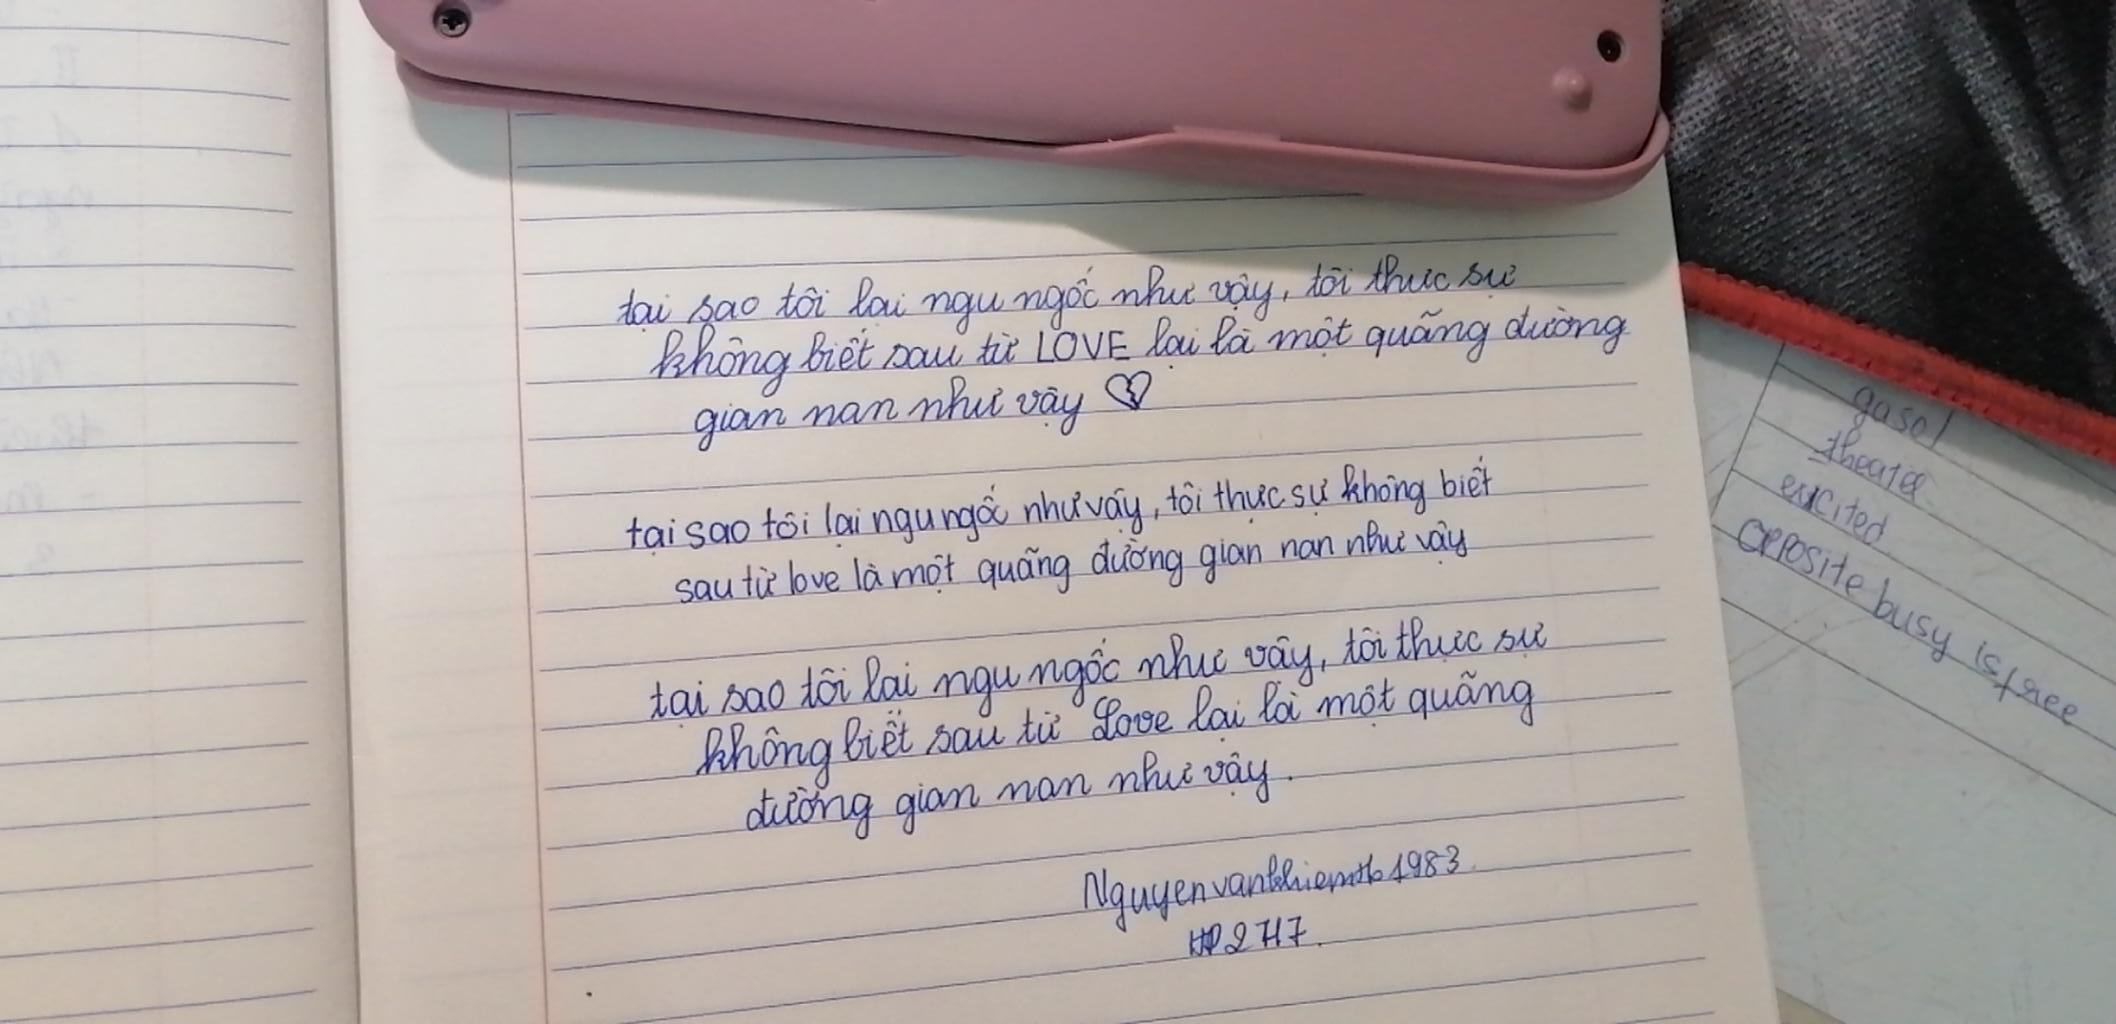 tại sao tôi lại ngu ngốc như vậy, tôi thực sự
không biết sau từ LOVE lại là một quãng đường
gian nan như vậy
tại sao tôi lại ngu ngốc như vậy, tôi thực sự không biết
sau từ love là một quãng đường gian nan như vậy
tại sao tôi lại ngu ngốc như vậy, tôi thực sự
không biết sau từ Love lại là một quãng
đường gian nan như vậy.
1983
theater
excited
opposite busy is free